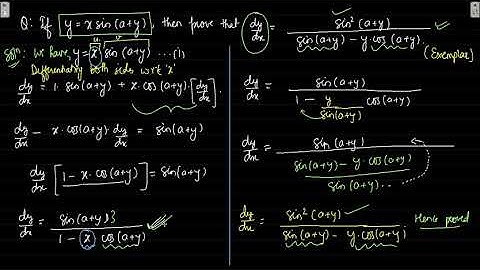 Q: If y = x sin(a+y), then prove that dy/dx = sin²(a+y) / sin(a+y) - y cos(a+y)
(Exemplar)
Soln: We have, y = x sin(a+y) ...(1)
u v
Differentiating both sides w.r.t 'x'
dy/dx = 1. sin(a+y) + x.cos(a+y) [dy/dx]
dy/dx - x.cos(a+y) dy/dx = sin(a+y)
dy/dx [1 - x.cos(a+y)] = sin(a+y)
dy/dx = sin(a+y) / 1 - x cos(a+y)
dy/dx = sin(a+y) / 1 - y/sin(a+y) cos(a+y)
dy/dx = sin(a+y) / sin(a+y) - y cos(a+y) / sin(a+y)
dy/dx = sin²(a+y) / sin(a+y) - y.cos(a+y) Hence proved